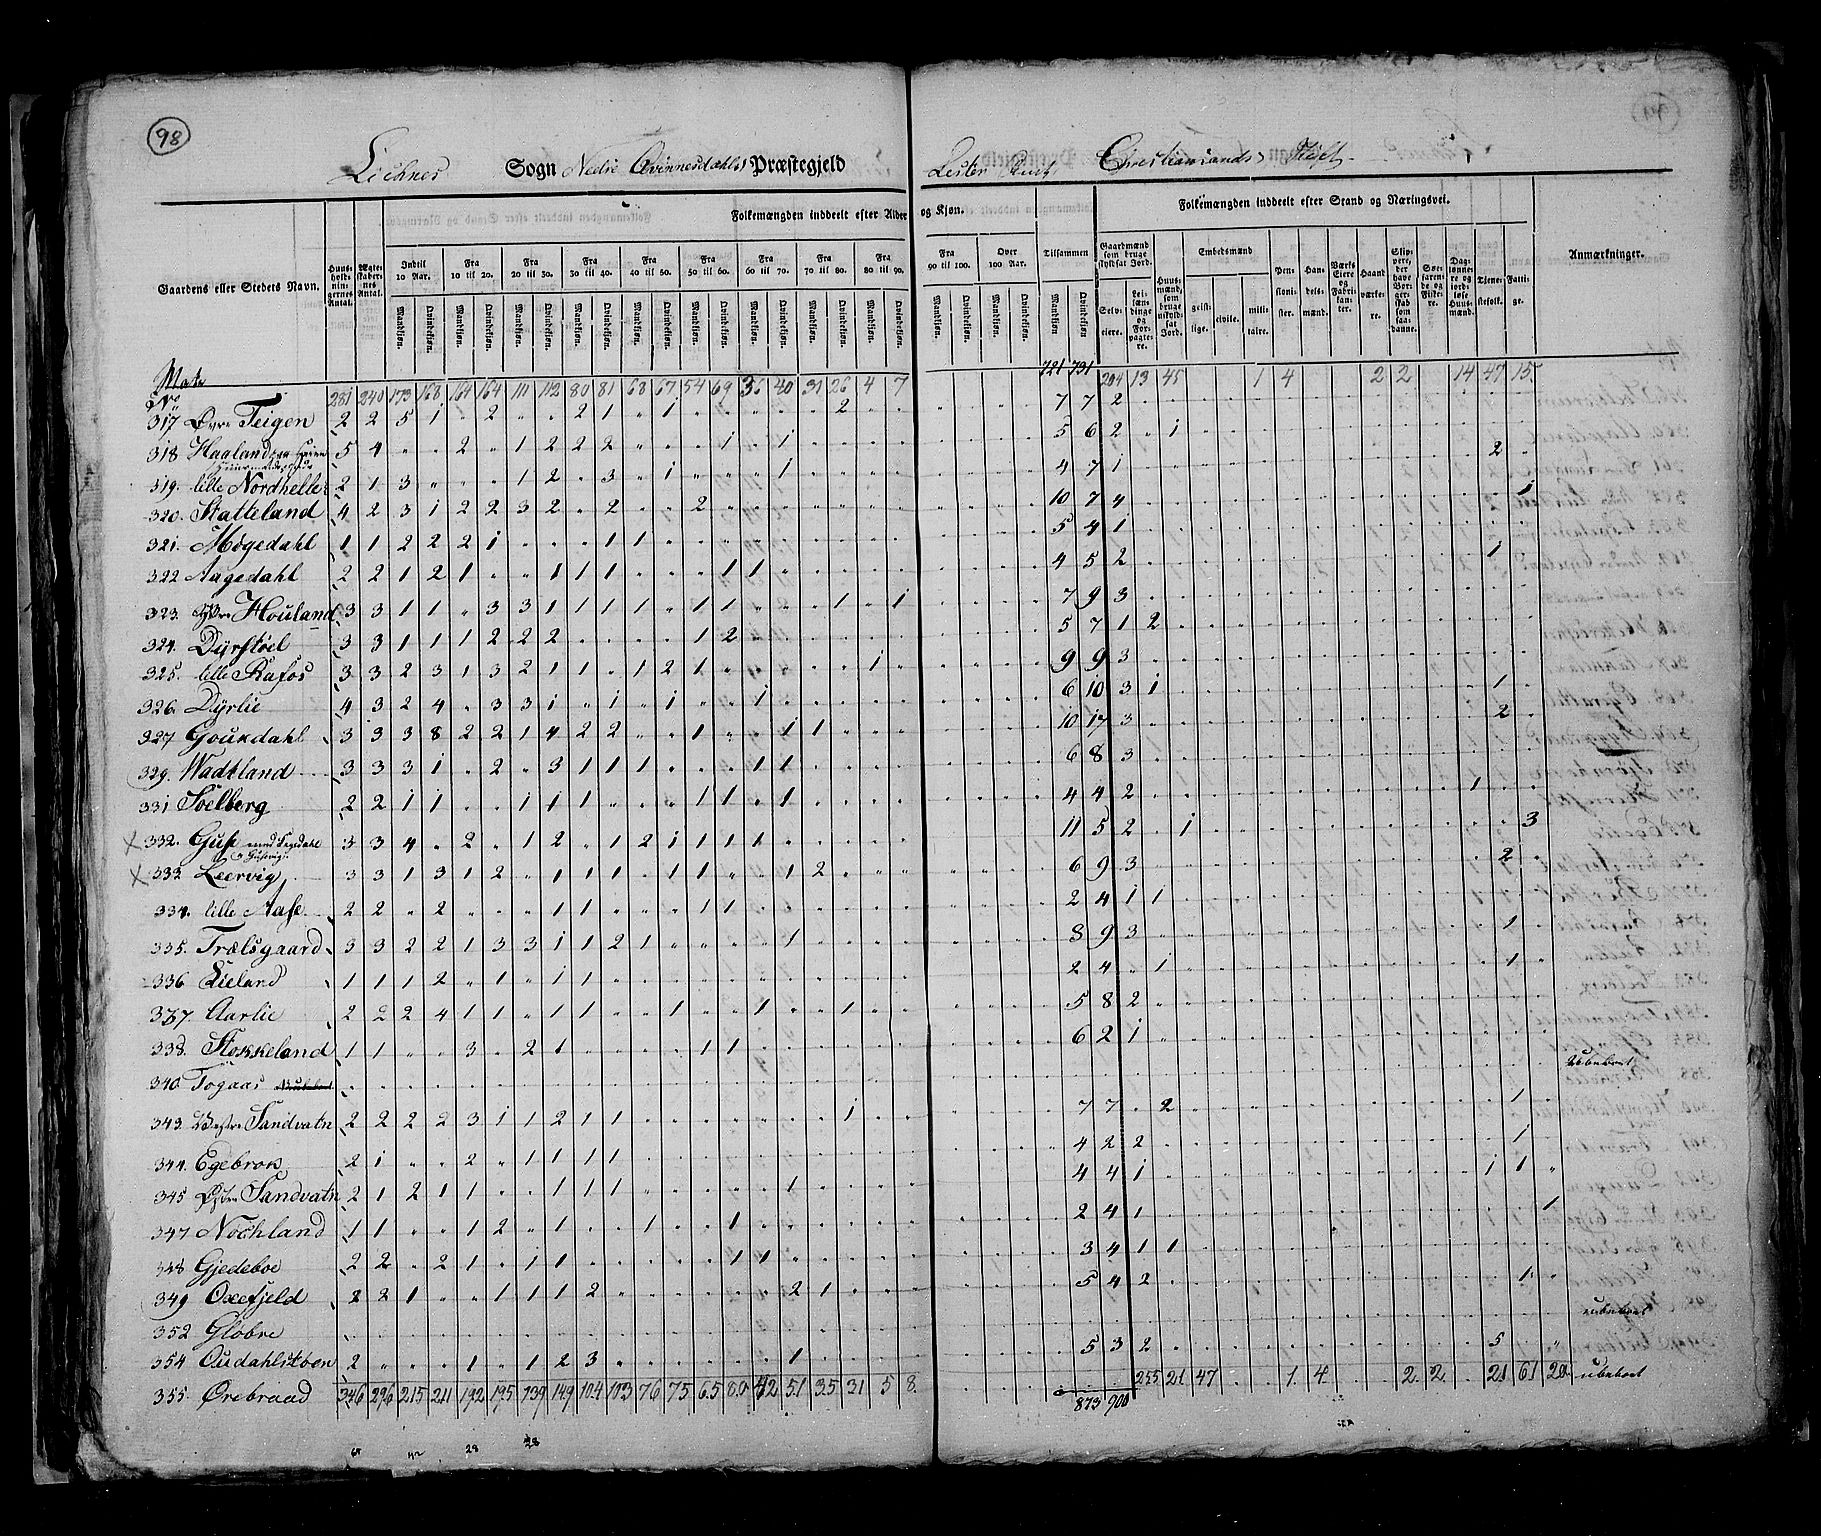 98
Liehnes Sogn Nedre Qvinnesdahls Præstegjeld Lister Christiansands Stift
Gaardens eller Stedets Navn. Huusholdningernes Antal. Ægteskabernes Antal. Folkemængden inddeelt efter Alder og Kjøn. Tilsammen Folkemængden inddeelt efter Stand og Næringsvei. Anmærkninger.
Indtil 10 Aar. Fra 10 til 20. Fra 20 til 30. Fra 30 til 40. Fra 40 til 50. Fra 50 til 60. Fra 60 til 70. Fra 70 til 80. Fra 80 til 90. Fra 90 til 100. Over 100 Aar.
Gaardmænd som bruge skyldsat Jord. Huusmænd, som bruge uskyldsat Jord. Embedsmænd Pensionister. Handelsmænd. Værkseiere og Fabrikanter. Haandværkere. Skippere, der have Borgerskab som saadanne. Søefarende og Fiskere. Daglønnere og jordløse Huusmænd. Tjenestefolk. Fattige.
Mandkjøn. Qvindekjøn. Selveiere. Leilændinge og Forpagtere. geistlige. civile. militaire.
281 240 173 168 164 164 111 112 80 81 68 67 54 69 36 40 31 26 4 7 721 731 204 13 45 1 4 2 2 14 47 15
317 Øvre Teigen 2 2 5 1 " 2 " " 2 1 " 1 " " " " " 2 " " 7 7 2
318 Haaland 5 4 " " 2 " 1 2 2 2 " " " 1 " 1 5 6 2 " 1 2
319. lille Nordhelle 2 1 3 " " " 1 2 " 3 " 1 " " " 1 4 7 1
320. Statteland 4 2 3 1 2 2 3 2 " 2 " " 2 10 7 4 1
321. Mögedahl 1 1 2 2 2 1 " " " 1 1 5 4 1
322 Aagedahl 2 2 1 2 1 " " 1 1 1 " " " 1 1 4 5 2 1
323. Houland 3 3 1 1 " 3 3 1 1 1 1 " 1 1 " " " 1 " 1 7 9 3
324. Dÿrstöel 3 3 1 1 1 2 2 2 " " " " 1 2 5 7 1 2
325. lille Rafos 3 3 2 3 1 3 2 1 1 " 1 2 1 " " " " " 1 " 9 9 3
326. Dÿrlie 4 3 2 4 " 3 3 1 " 1 " 1 " " 1 6 10 3 1 1
327 Goukdahl 3 3 3 8 2 2 1 4 2 2 " " 1 " " 1 1 10 17 3 2
329. Wadtland 3 3 3 1 " 2 " 3 1 1 1 " " " 1 1 6 8 3
331 Soelberg 2 2 1 1 " " 1 1 1 " " " 1 1 " 1 4 4 2 1
332. Guse med 3 3 4 " 2 " 1 2 " 1 2 1 1 1 1 11 5 2 " 1 3
333 Leervig 3 3 1 3 1 2 " 1 1 1 " 1 1 " " 1 2 6 9 3 2
334. lille Aase 2 2 " 2 " " " 1 1 " " " 1 1 2 4 1 1
335. Trælsgaard 3 3 2 2 1 3 3 1 1 2 1 " " " " 1 8 9 3 1
336 Lieland 1 1 1 2 " 1 " 1 1 2 4 " 1 1
337. Aarlie 2 2 2 4 1 1 " 1 1 " " 1 " " 1 " " 1 5 8 2
338. Stokkeland 1 1 " " 3 " 2 1 " " " " 1 1 6 2 1
340 Togaas ubeboet
343. Vestre Sandvatn 2 2 2 2 3 1 1 2 1 1 " " " " " " " 1 7 7 " 2 1
344. Egebrok 2 1 " " 2 " 1 1 1 1 4 2 2 1
345 Østre Sandvatn 2 1 2 1 1 " " 1 1 1 " " " " " 1 4 4 1 1 1 "
347 Nochland 1 1 " " 1 2 " 1 " " 1 " " 1 2 4 1 1
348 Gjedeboe 2 2 " 2 1 " 1 1 " " " " " 1 1 3 4 1 1
349 Oxefjeld 2 2 1 " " 1 1 1 2 " " " " " " 2 1 5 4 2 1 "
352 Glöbre ubeboet
354 Oudahlstöen 2 " " " 1 " 1 2 3 " " " " " " 1 5 3 2 5 "
355. Ørebraad 346 296 215 211 192 195 139 149 104 103 76 75 65 80 42 51 35 31 5 8 873 900 255 21 47 1 4 2 2 21 61 20 ubeboet
28 28